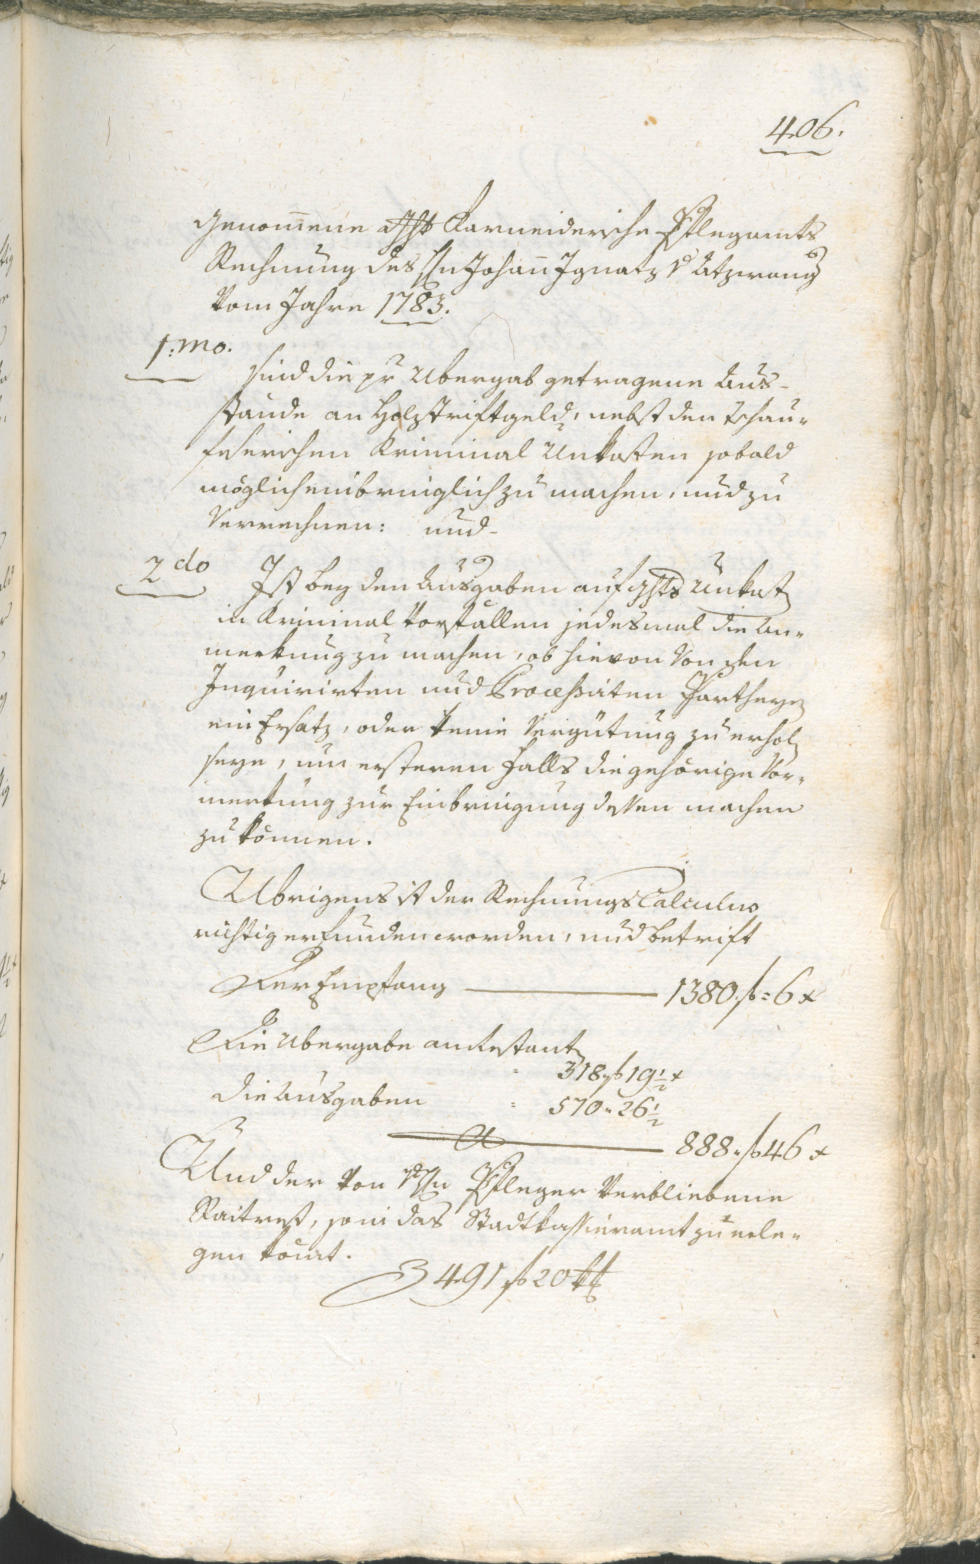 406.
genom̄ene Karneidersche Pflegamts
Rechnung des Hn Johañ Ignatz v Atzwang
Vom Jahre 1783.
1:mo.
sind die pr Ubergab getragene Aus-
stände an Holztriftgeld, nebst den
Kriminal Unkosten sobald
möglich einbringlich zu machen, und zu
Verrechnen: und-
2do
Ist bey den Ausgaben auf Unkost
in Kriminal Vorfällen jedesmal die An-
merkung zu machen, ob hievon Von den
Inquirirten und Proceßirten Partheyen
ein Ersatz, oder keine Vergütung zu erhol
seye, um ersteren Falls die gehörige Vor-
merkung zur Einbringung dessen machen
zu können.
Ubrigens ist der Rechnungs Calculus
richtig erfunden worden, und betrift
Der Empfang 1380 f = 6 x
Die Ubergabe an Restant
318 f 19½ x
die Ausgaben 570 " 26½
888 " f 46 x
Und der Von Hn Pfleger Verbliebene
Raitrest, so in das Stadtkassieramt zu erle-
gen kömt.
491 f 20 x